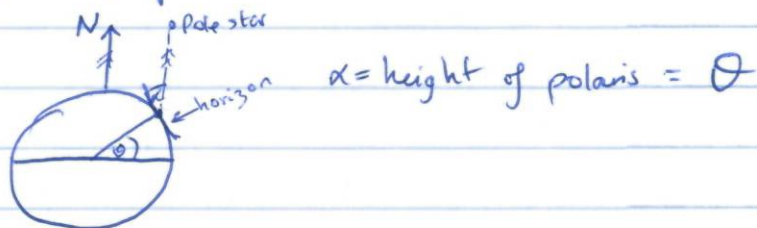 N Pole star
horizon
α = height of polaris = θ
θ